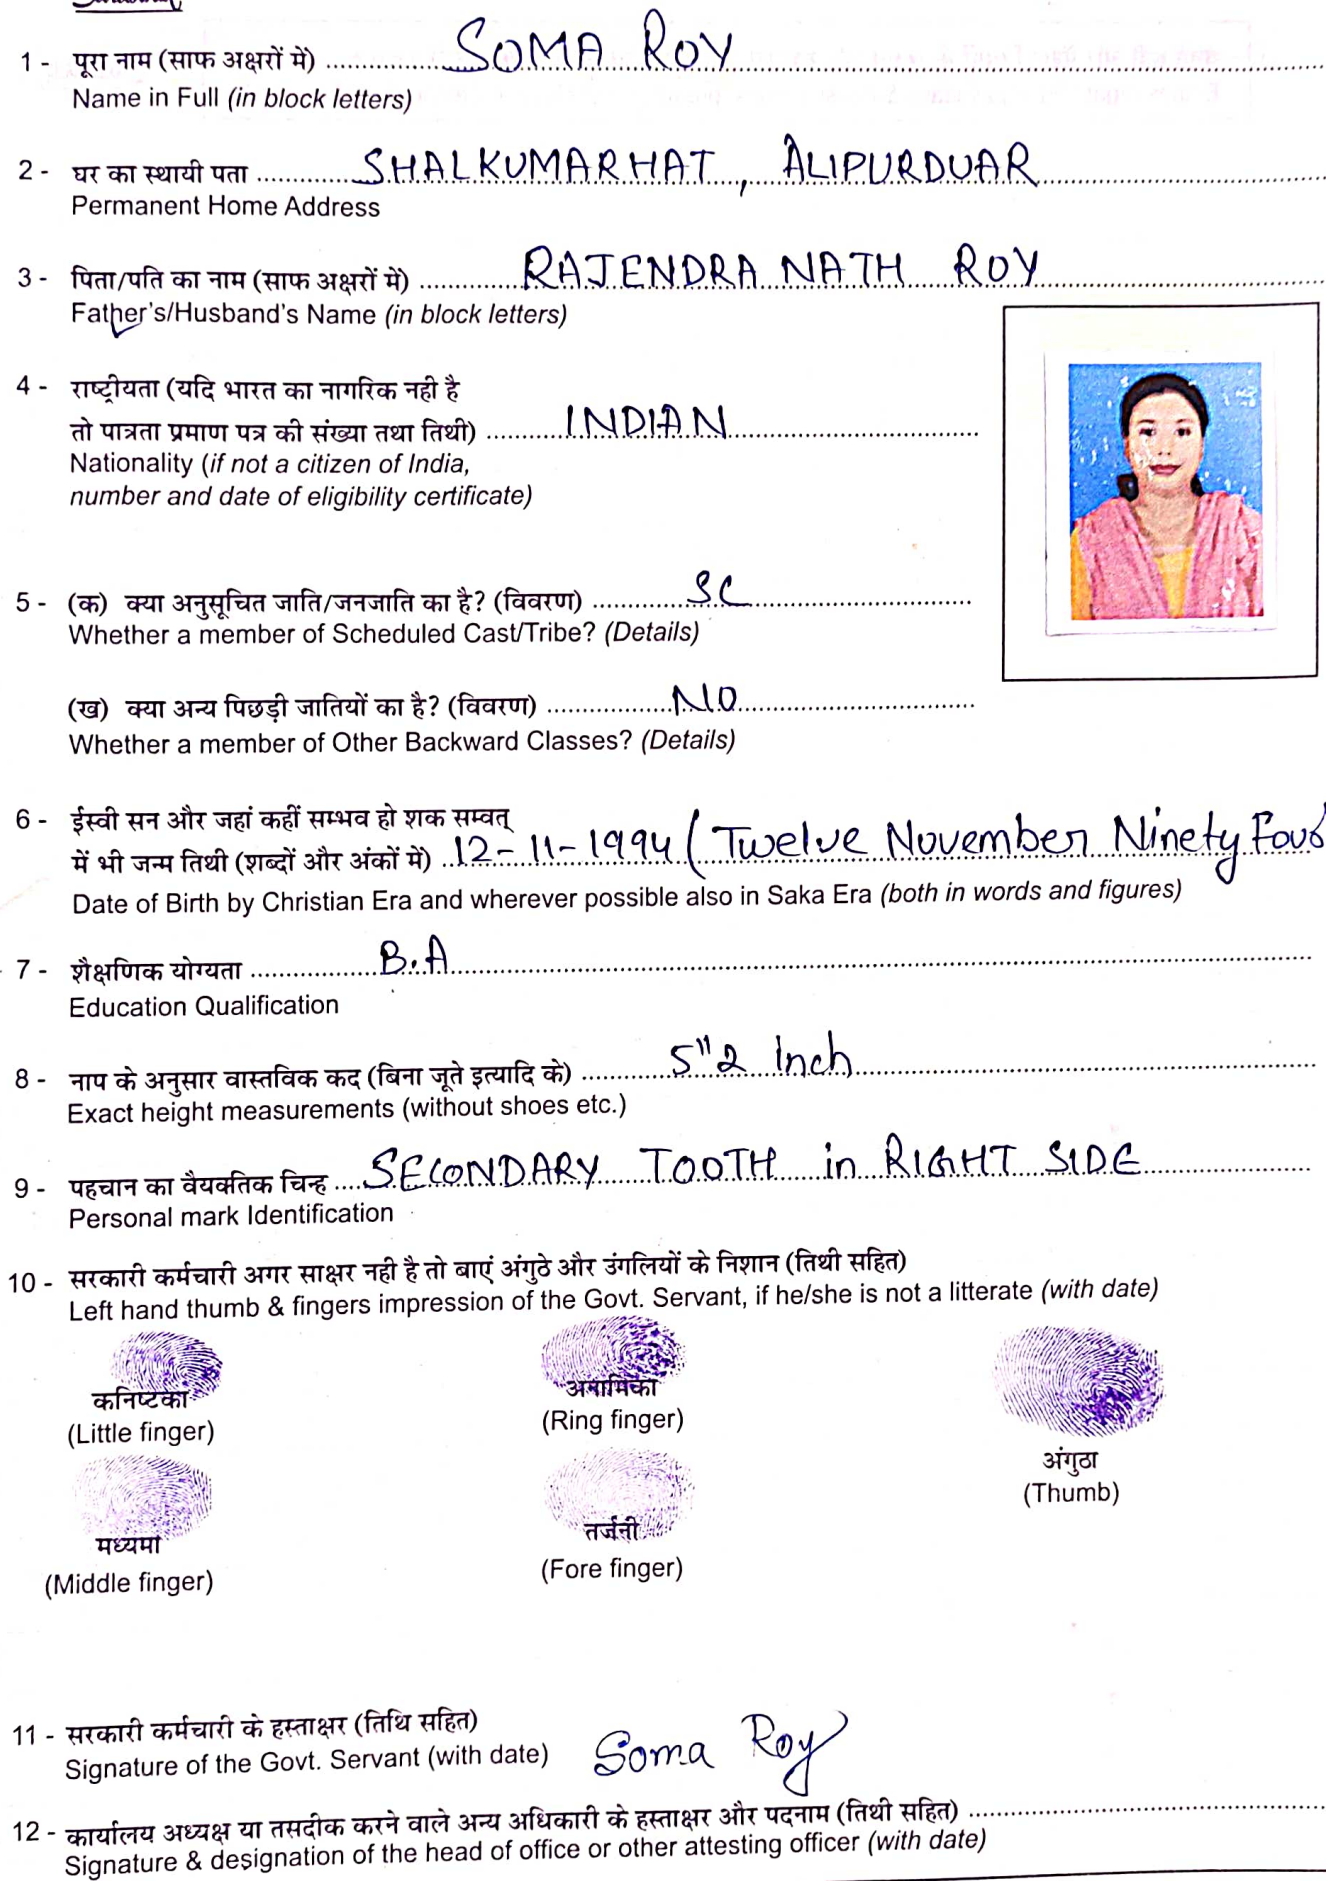 1 - पूरा नाम (साफ अक्षरों में) .................. SOMA ROY
Name in Full (in block letters)
2 - घर का स्थायी पता .............. SHALKUMARHAT, ALIPURDUAR
Permanent Home Address
3 - पिता/पति का नाम (साफ अक्षरों में) .............. RAJENDRA NATH ROY
Father's/Husband's Name (in block letters)
4 - राष्ट्रीयता (यदि भारत का नागरिक नही है
तो पात्रता प्रमाण पत्र की संख्या तथा तिथी) ........... INDIAN
Nationality (if not a citizen of India,
number and date of eligibility certificate)
5 - (क) क्या अनुसूचित जाति/जनजाति का है? (विवरण) .............. SC
Whether a member of Scheduled Cast/Tribe? (Details)
(ख) क्या अन्य पिछड़ी जातियों का है? (विवरण) .................. NO
Whether a member of Other Backward Classes? (Details)
6 - ईस्वी सन और जहां कहीं सम्भव हो शक सम्वत्
में भी जन्म तिथी (शब्दों और अंकों में) .. 12-11-1994 ( Twelve November Ninety Four
Date of Birth by Christian Era and wherever possible also in Saka Era (both in words and figures)
7 - शैक्षणिक योग्यता .................. B.A
Education Qualification
8 - नाप के अनुसार वास्तविक कद (बिना जूते इत्यादि के) ............ 5"2 Inch
Exact height measurements (without shoes etc.)
9 - पहचान का वैयक्तिक चिन्ह .... SECONDARY TOOTH in RIGHT SIDE
Personal mark Identification
10 - सरकारी कर्मचारी अगर साक्षर नही है तो बाएं अंगुठे और उंगलियों के निशान (तिथी सहित)
Left hand thumb & fingers impression of the Govt. Servant, if he/she is not a litterate (with date)
कनिष्टका अनामिका
(Little finger) (Ring finger)
अंगुठा
(Thumb)
मध्यमा तर्जनी
(Middle finger) (Fore finger)
11 - सरकारी कर्मचारी के हस्ताक्षर (तिथि सहित)
Signature of the Govt. Servant (with date) Soma Roy
12 - कार्यालय अध्यक्ष या तसदीक करने वाले अन्य अधिकारी के हस्ताक्षर और पदनाम (तिथी सहित) ..................
Signature & designation of the head of office or other attesting officer (with date)